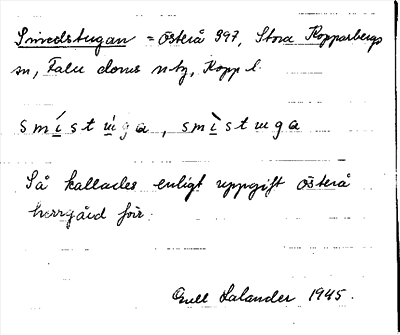 Smedstugan = Österå 397, Stora Kopparbergs
sn, Falu doms htg, Kopp l.
smístu̍ga, smìstuga
Så kallades enligt uppgift Österå
herrgård förr.
Gull Lalander 1945.